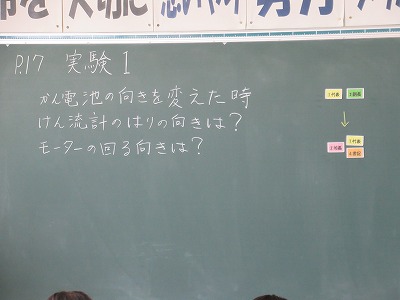 P.17 実験1
かん電池の向きを変えた時
けん流計のはりの向きは?
モーターの回る向きは?